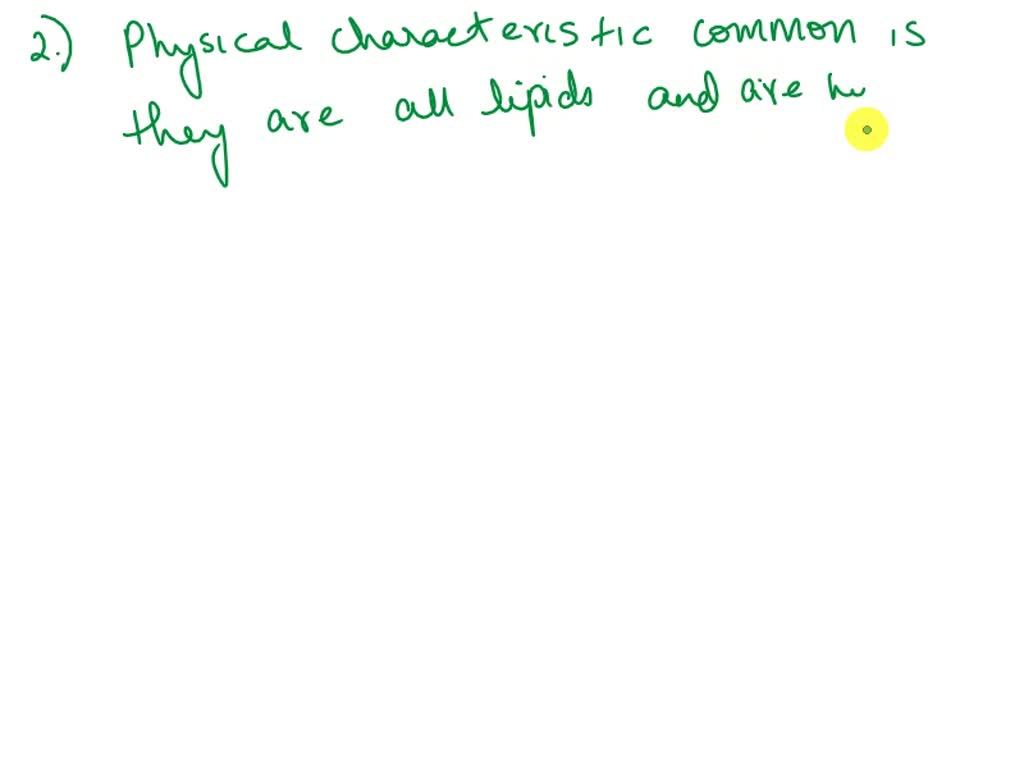 2.) Physical characteristic common is
they are all lipids and are